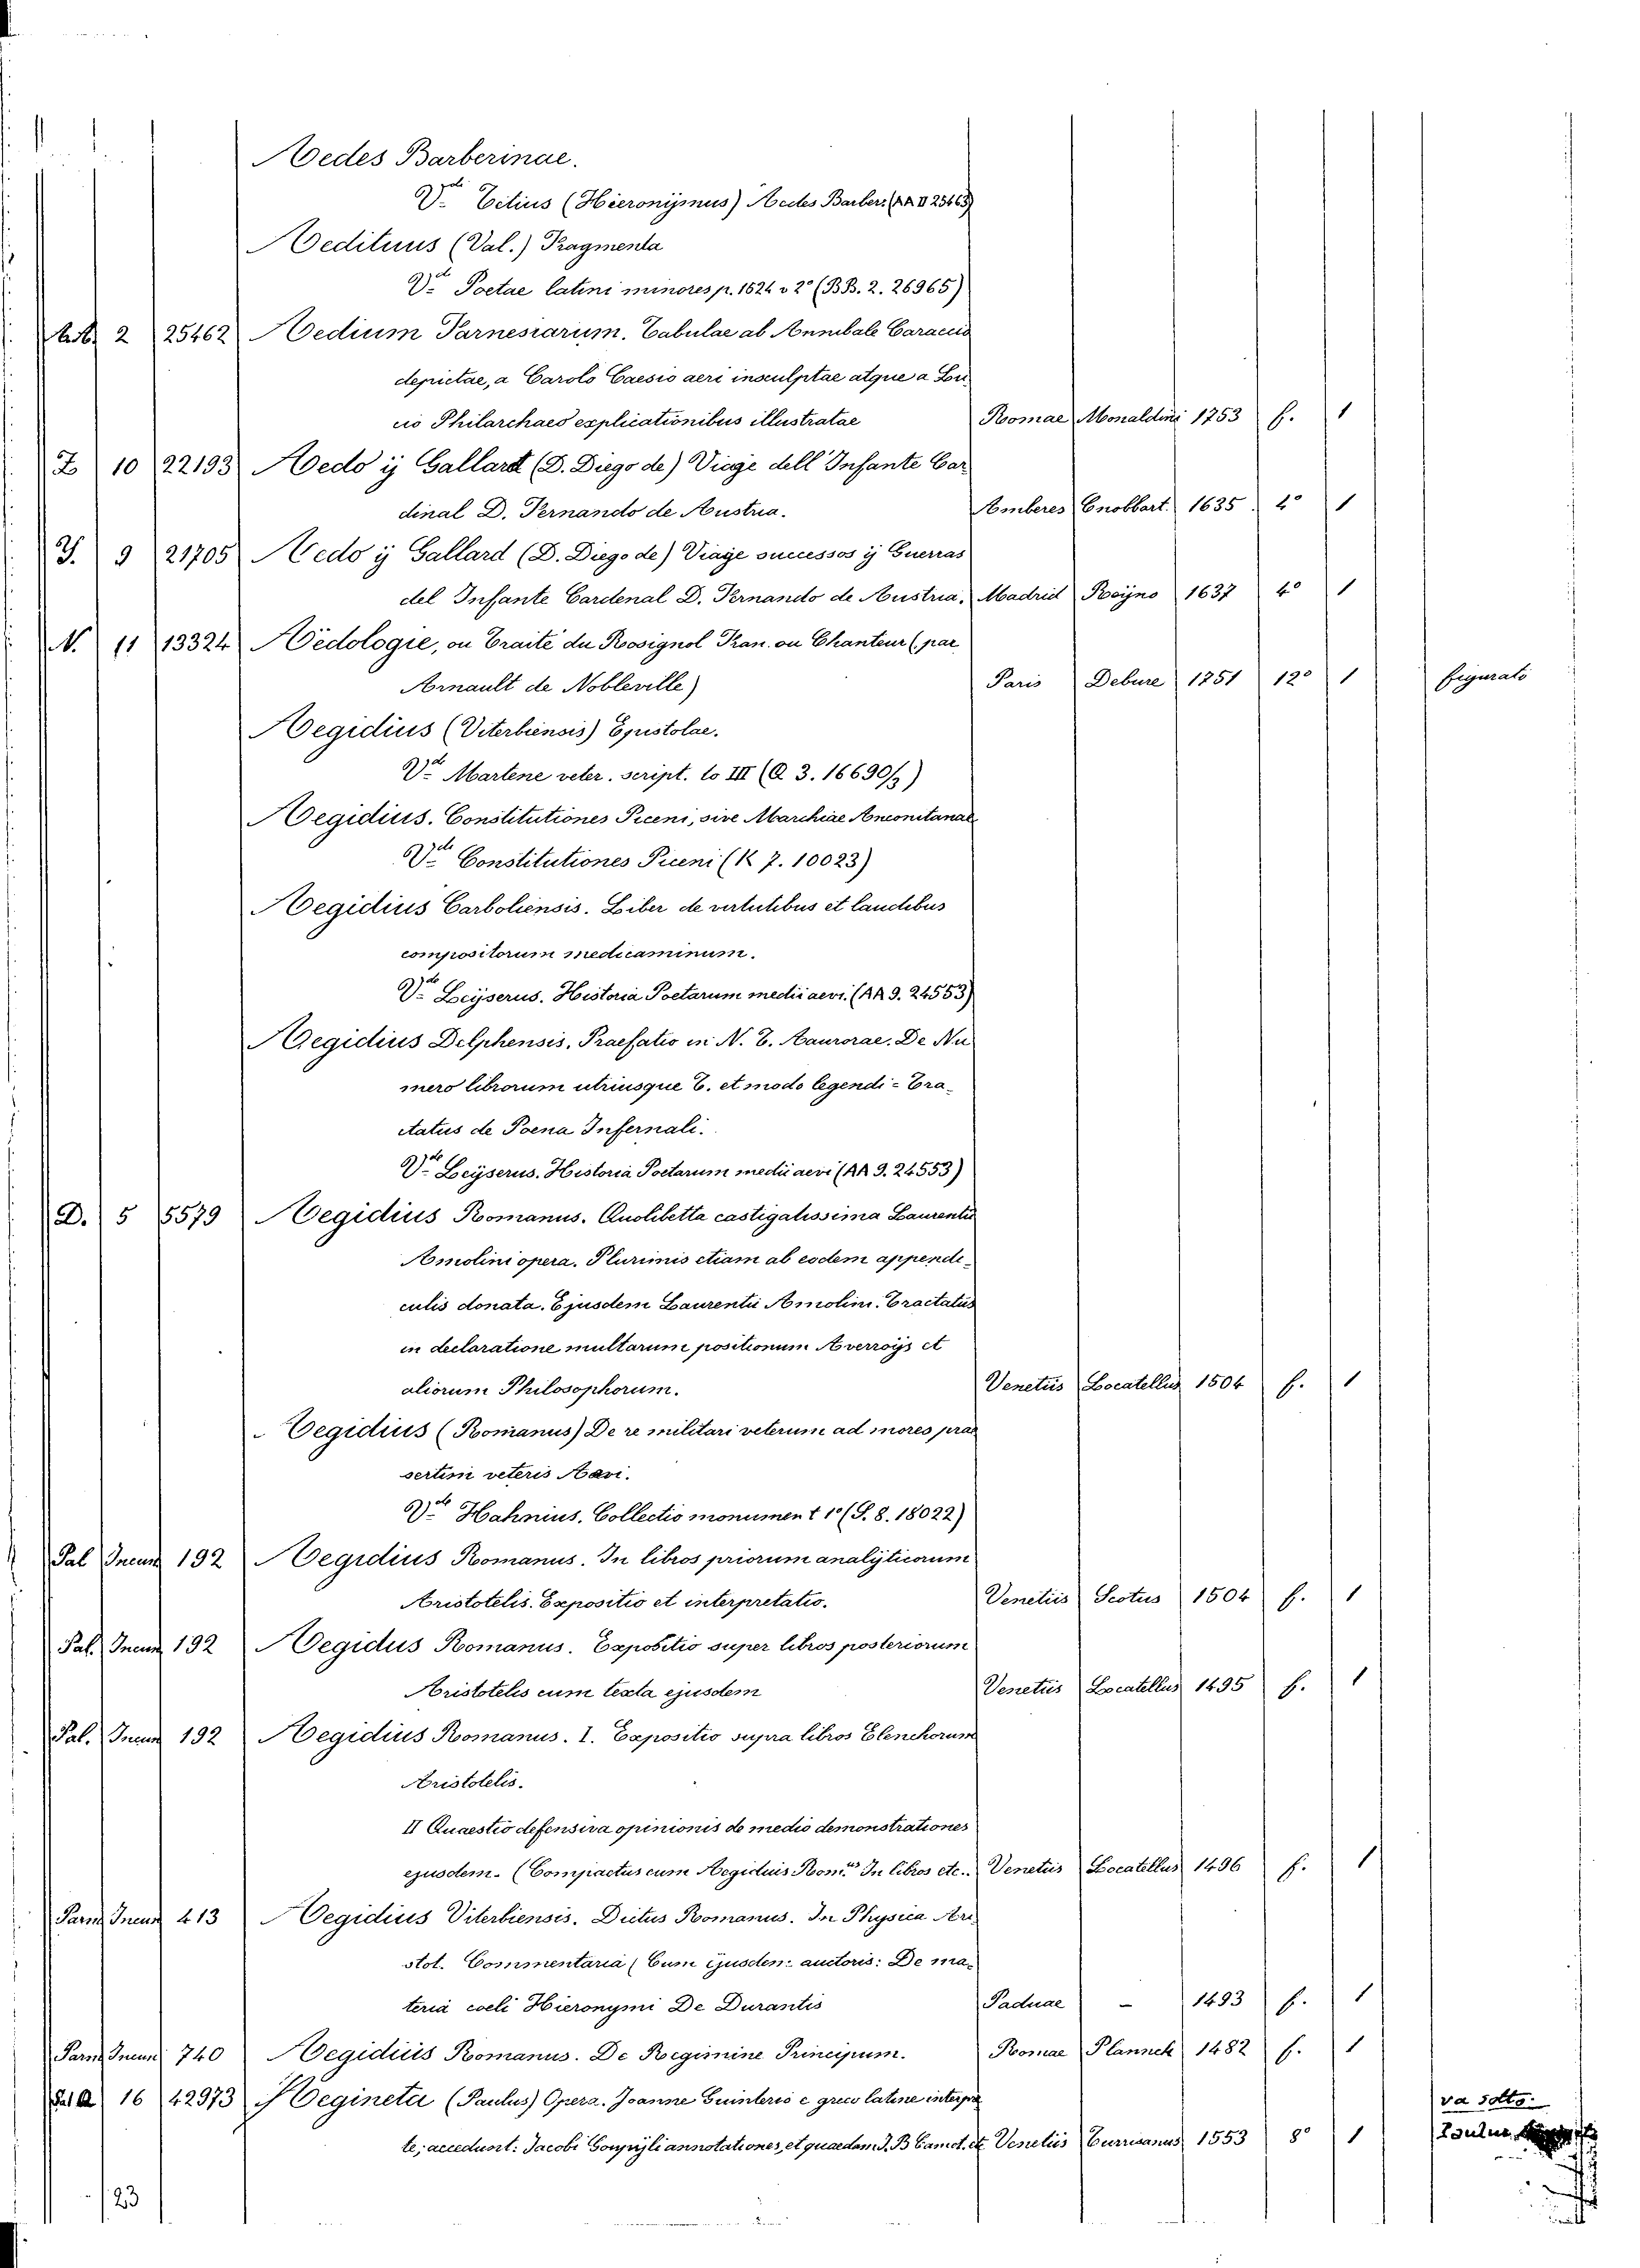 Aedes Barberinae.
V.de Tetius (Hieronijmus) Aedes Barber. (AA II 25463)
Aedituus (Val.) Fragmenta
V.de Poetae latini minores p. 1524 v 2º (BB. 2. 26965)
2 25462 Aedium Farnesiarum. Tabulae ab Annibale Caraccio
depictae, a Carolo Caesio aeri insculptae atque a Lu
cio Philarchaeo explicationibus illustratae Romae Monaldini 1753 f. 1
Z 10 22193 Aedo ij Gallart (D. Diego de) Viage dell' Infante Car
dinal D. Fernando de Austria. Amberes Cnobbart. 1635 4º 1
Y. 9 21705 Aedo ij Gallard (D. Diego de) Viage successos ij Guerras
del Infante Cardenal D. Fernando de Austria. Madrid Reijno 1637 4º 1
N. 11 13324 Aëdologie, ou Traité du Rosignol Fran. ou Chanteur (par
Arnault de Nobleville) Paris Debure 1751 12º 1 figurato
Aegidius (Viterbiensis) Epistolae.
V.de Martene veter. script. to III (Q 3. 16690/3)
Aegidius. Constitutiones Piceni, sive Marchiae Anconitanae
V.de Constitutiones Piceni (K 7. 10023)
Aegidius Carboliensis. Liber de vertutibus et laudebus
compositorum medicaminum.
V.de Leijserus. Historia Poetarum medii aevi. (AA 9. 24553)
Aegidius Delphensis, Praefatio in N. T. Aaurorae. De Nu
mero librorum utriusque T. et modo legendi - Tra-
ctatus de Poena Infernali.
V.de Leijserus. Historia Poetarum medii aevi (AA 9. 24553)
D. 5 5579 Aegidius Romanus. Quolibetta castigatissima Laurentii
Amolini opera. Plurimis etiam ab eodem appendi-
culis donata. Ejusdem Laurentii Amolini. Tractatus
in declaratione multarum positionum Averroijs et
aliorum Philosophorum. Venetiis Locatellus 1504 f. 1
Aegidius (Romanus) De re militari veterum ad mores prae
sertim veteris Aevi.
V.de Hahnius. Collectio monument t 1º (S. 8. 18022)
Pal Incun 192 Aegidius Romanus. In libros priorum analijticorum
Aristotelis. Expositio et interpretatio. Venetiis Scotus 1504 f. 1
Pal. Incun 192 Aegidus Romanus. Expositio super libros posteriorum
Aristotelis cum texta ejusdem Venetiis Locatellus 1495 f. 1
Pal. Incun 192 Aegidius Romanus. I. Expositio supra libros Elenchorum
Aristotelis.
II Quaestio defensiva opinionis de medio demonstrationes
ejusdem. (Compactus cum Aegiduis Rom.us In libros etc. Venetiis Locatellus 1496 f. 1
Parm Incun 413 Aegidius Viterbiensis. Dictus Romanus. In Physica Ari
stot. Commentaria (Cum ejusdem auctoris: De ma-
teria coeli Hieronymi De Durantis Paduae - 1493 f. 1
Parm Incun 740 Aegidiis Romanus. De Regimine Principum. Romae Plannck 1482 f. 1
16 42973 Aeginetii (Paulus) Opera. Joanne Guinterio e greco latine interpre
te; accedunt: Jacobi Goupijli annotationes, et quaedam J. B Camot. etc Venetiis Turrisanus 1553 8º 1
va sotto
Paulus
23